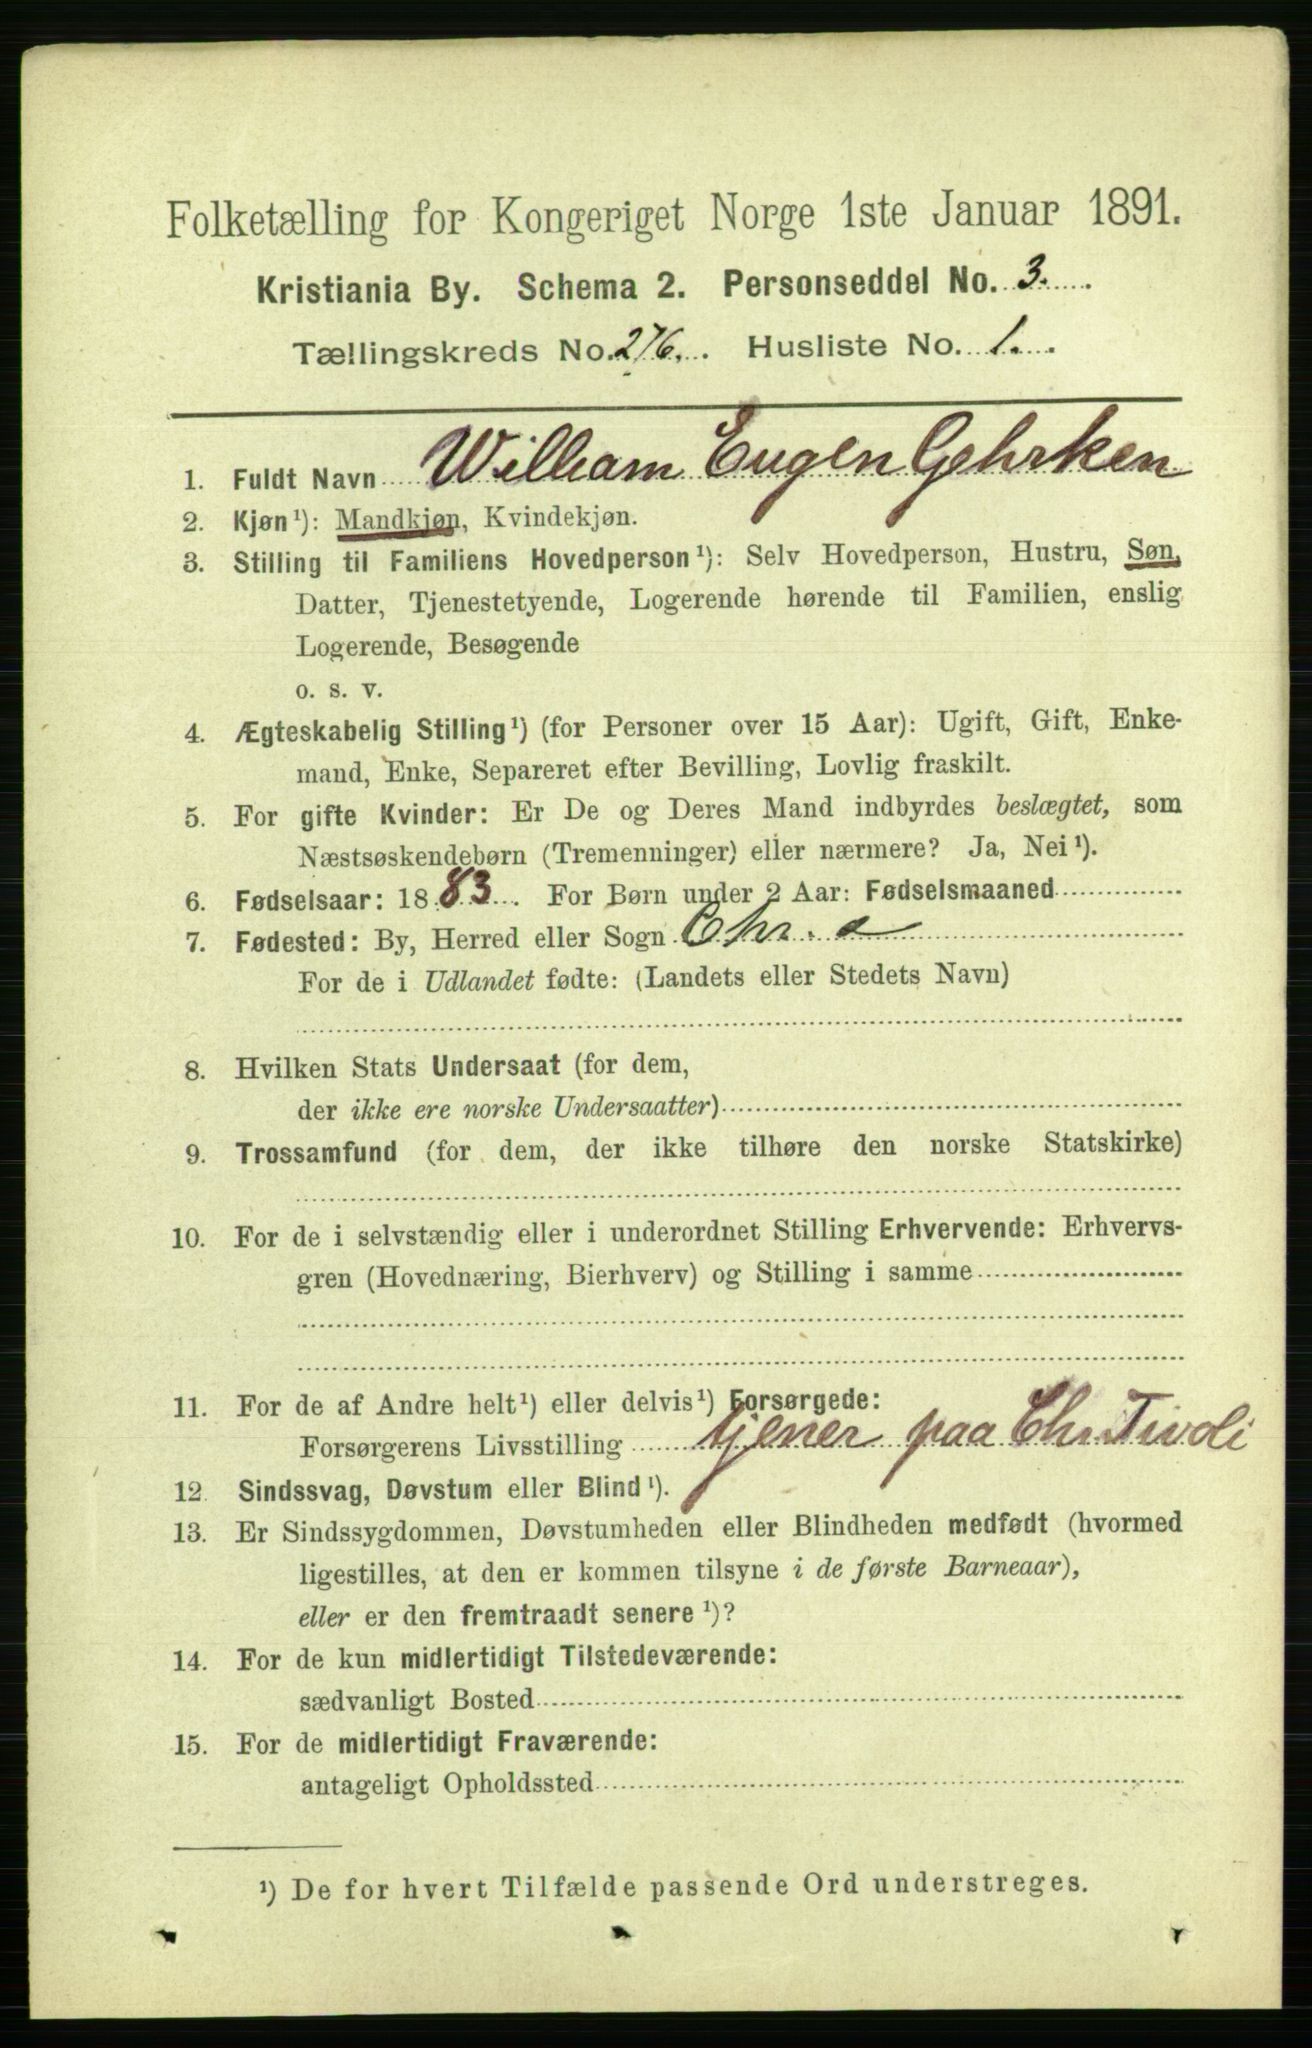 Folketælling for Kongeriget Norge 1ste Januar 1891.
Kristiania By. Schema 2. Personseddel No. 3.
Tællingskreds No. 276. Husliste No. 1.
1. Fuldt Navn William Eugen Gehrken
2. Kjøn¹): Mandkjøn, Kvindekjøn.
3. Stilling til Familiens Hovedperson¹): Selv Hovedperson, Hustru, Søn,
Datter, Tjenestetyende, Logerende hørende til Familien, enslig
Logerende, Besøgende
o. s. v.
4. Ægteskabelig Stilling¹) (for Personer over 15 Aar): Ugift, Gift, Enke-
mand, Enke, Separeret efter Bevilling, Lovlig fraskilt.
5. For gifte Kvinder: Er De og Deres Mand indbyrdes beslægtet, som
Næstsøskendebørn (Tremenninger) eller nærmere? Ja, Nei¹).
6. Fødselsaar: 1883. For Børn under 2 Aar: Fødselsmaaned
7. Fødested: By, Herred eller Sogn Chr. a
For de i Udlandet fødte: (Landets eller Stedets Navn)
8. Hvilken Stats Undersaat (for dem,
der ikke ere norske Undersaatter)
9. Trossamfund (for dem, der ikke tilhøre den norske Statskirke)
10. For de i selvstændig eller i underordnet Stilling Erhvervende: Erhvervs-
gren (Hovednæring, Bierhverv) og Stilling i samme
11. For de af Andre helt¹) eller delvis¹) Forsørgede:
Forsørgerens Livsstilling tjener paa Chr. Tivoli
12. Sindssvag, Døvstum eller Blind¹).
13. Er Sindssygdommen, Døvstumheden eller Blindheden medfødt (hvormed
ligestilles, at den er kommen tilsyne i de første Barneaar),
eller er den fremtraadt senere¹)?
14. For de kun midlertidigt Tilstedeværende:
sædvanligt Bosted
15. For de midlertidigt Fraværende:
antageligt Opholdssted
¹) De for hvert Tilfælde passende Ord understreges.